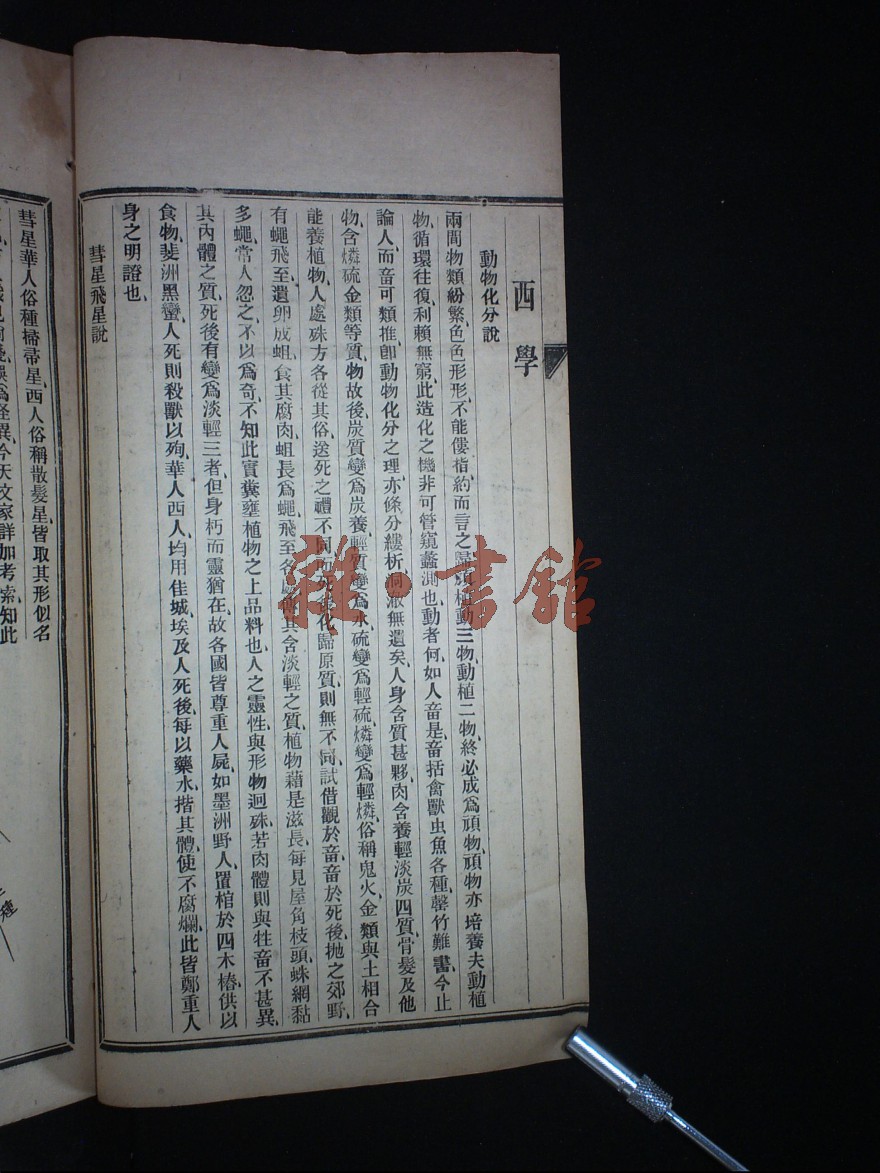 西學
動物化分說
兩間物類紛繁、色色形形、不能僂指、約而言之、歸頑植動三物、動植二物、終必成爲頑物、頑物亦培養夫動植
物、循環往復、利賴無窮、此造化之機、非可管窺蠡測也、動者何、如人畜是、畜括禽獸虫魚各種、罄竹難書、今止
論人、而畜可類推、卽動物化分之理、亦條分縷析、洞澈無遺矣、人身含質甚夥、肉含養輕淡炭四質、骨髮及他
物、含燐硫金類等質、物故後、炭質變爲炭養、輕質變爲水、硫變爲輕硫、燐變爲輕燐、俗稱鬼火、金類與土相合、
能養植物、人處殊方、各從其俗、送死之禮不同、而死後化歸原質、則無不同、試借觀於畜、畜於死後、拋之郊野、
有蠅飛至、遺卵成蛆、食其腐肉、蛆長爲蠅、飛至各處、傳其含淡輕之質、植物藉是滋長、每見屋角枝頭、蛛網黏
多蠅、常人忽之、不以爲奇、不知此實糞壅植物之上品料也、人之靈性與形物迥殊、若肉體則與牲畜不甚異、
其內體之質、死後有變爲淡輕三者、但身朽而靈猶在、故各國皆尊重人屍、如墨洲野人、置棺於四木樁、供以
食物、斐洲黑蠻、人死則殺獸以殉、華人西人、均用佳城、埃及人死後、每以藥水、揩其體、使不腐爛、此皆鄭重人
身之明證也、
彗星飛星說
彗星華人俗種掃帚星、西人俗稱散髮星、皆取其形似名
爲怪異、今天文家詳加考索、知此
種
雜·書館